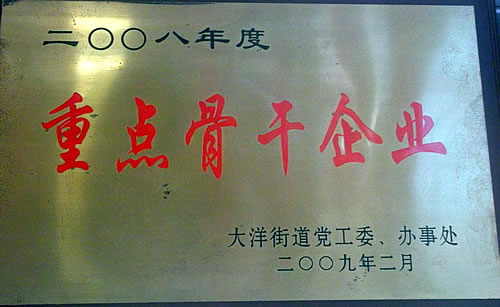 二〇〇八年度
重点骨干企业
大洋街道党工委、办事处
二〇〇九年二月